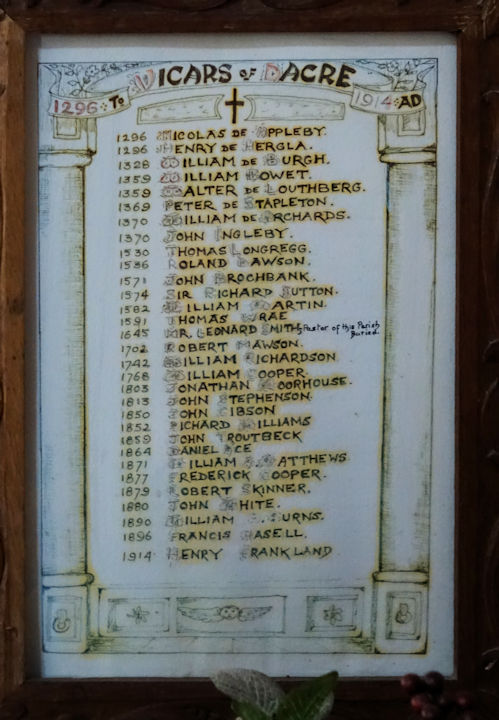 VICARS OF DACRE
1296 To 1914 AD
1296 NICOLAS DE APPLEBY.
1296 HENRY DE HERGLA.
1328 WILLIAM DE BURGH.
1359 WILLIAM BOWET.
1359 WALTER DE LOUTHBERG.
1369 PETER DE STAPLETON.
1370 WILLIAM DE ORCHARDS.
1370 JOHN INGLEBY.
1530 THOMAS LONGREGG.
1536 ROLAND DAWSON.
1571 JOHN BROCHBANK.
1574 SIR RICHARD SUTTON.
1582 WILLIAM MARTIN.
1591 THOMAS WRAE
1645 MR. LEONARD SMITH, Pastor of this Parish Buried.
1702 ROBERT MAWSON.
1742 WILLIAM RICHARDSON
1768 WILLIAM COOPER.
1803 JONATHAN MOORHOUSE.
1813 JOHN STEPHENSON.
1850 JOHN GIBSON
1852 RICHARD WILLIAMS
1859 JOHN TROUTBECK
1864 DANIEL ACE
1871 WILLIAM MATTHEWS
1877 FREDERICK COOPER.
1879 ROBERT SKINNER.
1880 JOHN WHITE.
1890 WILLIAM BURNS.
1896 FRANCIS HASELL.
1914 HENRY FRANKLAND